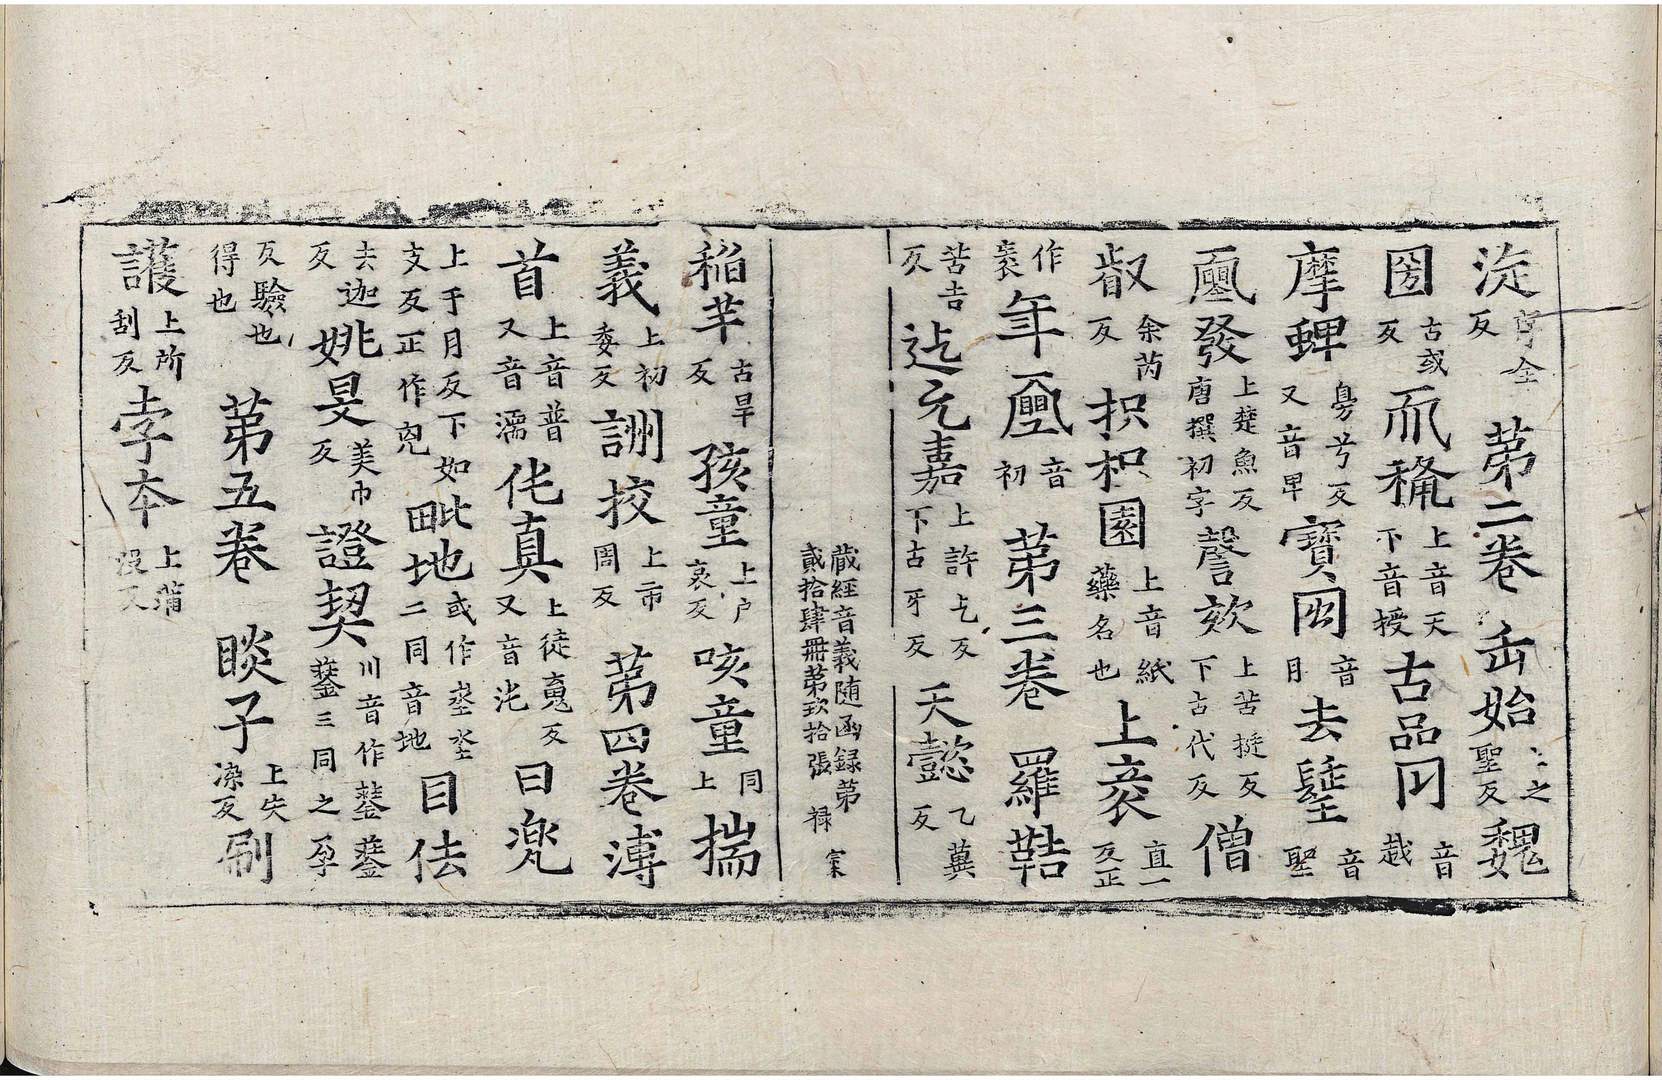 㳬序全反第二卷 缶始〻之聖反魏
圀古或反𠀑稵上音天下音授古品囝音越
摩蜱㫄兮反又音早寶囡音月去𨲢音聖
𠙺發上楚魚反唐撰初字謦欬上苦挺反下古代反僧
叡余芮反抧枳園上音紙藥名也上袠直一反正
作袠𠡦𠙺音初 第三卷 羅鞊
苦吉反迄元嘉上許乞反下古牙反天懿乙兾反
藏經音義随函録第貳拾肆冊第玖拾張 禄 宗
稲芉古旱反孩童上户哀反咳童同上揣
義上初委反詶挍上市周反 第四卷 溥
首上音普又音濡佗真上徒䰟反又音沱曰㼳
上于月反下如支反正作兜毗地或作埊坔二同音地目佉
去迦反姚旻美巾反證㓞川音作𨮻𨮻𨮻三同之孕
反驗也得也 第五卷 睒子上失染反刷
護上所刮反孛夲上蒲没反